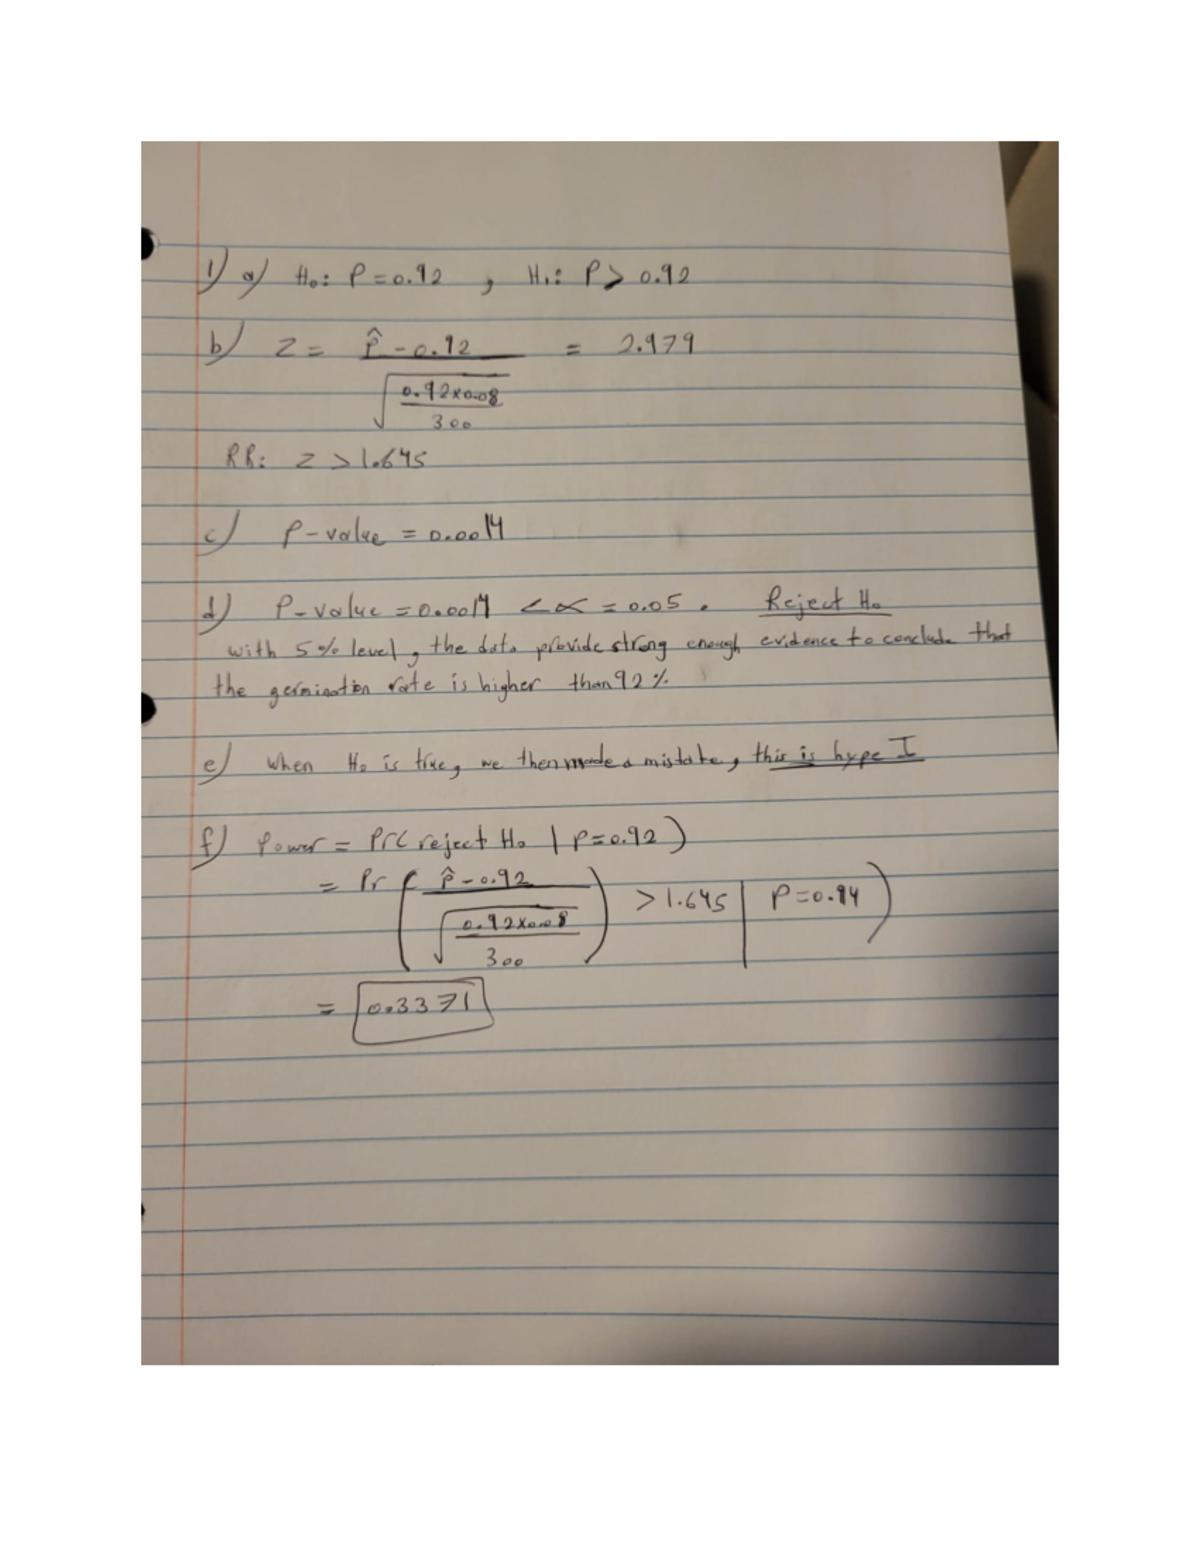 1) a) H₀: P = 0.92 , H₁: P > 0.92
b) Z = (p̂ - 0.92) / √(0.92x0.08 / 300) = 2.979
RR: Z > 1.645
c) P-value = 0.0014
d) P-value = 0.0014 < α = 0.05 . Reject H₀
with 5% level, the data provide strong enough evidence to conclude that
the germination rate is higher than 92%
e) when H₀ is true, we then made a mistake, this is hype I
f) Power = Pr( reject H₀ | P=0.92 )
= Pr ( (p̂ - 0.92) / √(0.92x0.08 / 300) ) > 1.645 | P=0.94 )
= 0.3371